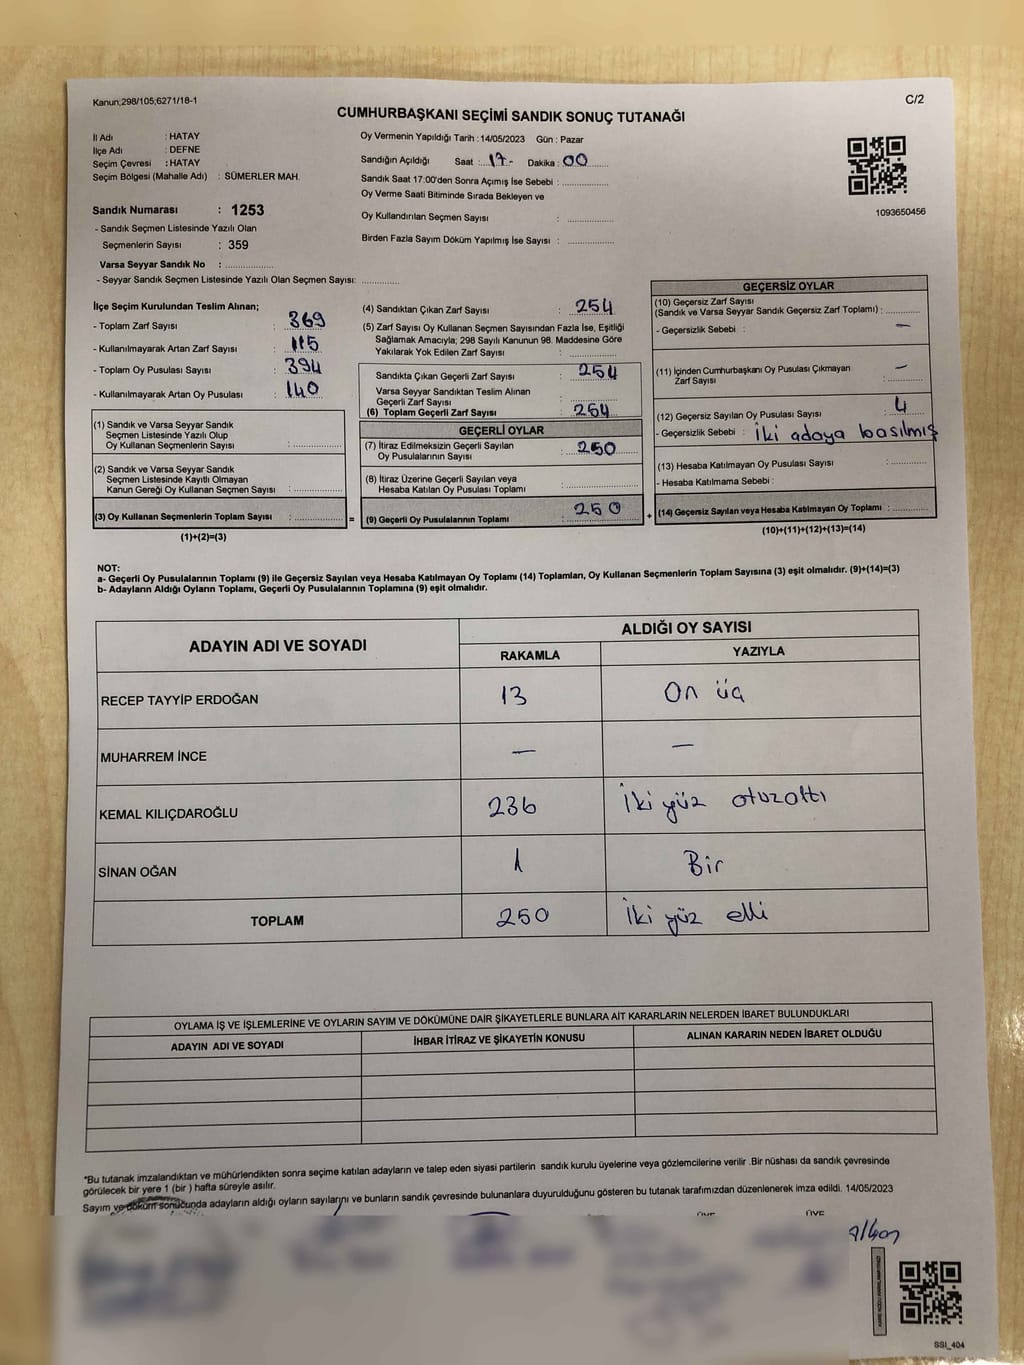 Kanun;298/105;6271/18-1
C/2
CUMHURBAŞKANI SEÇİMİ SANDIK SONUÇ TUTANAĞI
İl Adı : HATAY
İlçe Adı : DEFNE
Seçim Çevresi : HATAY
Seçim Bölgesi (Mahalle Adı) : SÜMERLER MAH.
Sandık Numarası : 1253
- Sandık Seçmen Listesinde Yazılı Olan
Seçmenlerin Sayısı : 359
Varsa Seyyar Sandık No : ................
- Seyyar Sandık Seçmen Listesinde Yazılı Olan Seçmen Sayısı: .............
Oy Vermenin Yapıldığı Tarih : 14/05/2023 Gün : Pazar
Sandığın Açıldığı Saat : 17- Dakika : 00
Sandık Saat 17:00'den Sonra Açımış İse Sebebi : ................
Oy Verme Saati Bitiminde Sırada Bekleyen ve
Oy Kullandırılan Seçmen Sayısı : ................
Birden Fazla Sayım Döküm Yapılmış İse Sayısı : ................
1093650456
İlçe Seçim Kurulundan Teslim Alınan;
- Toplam Zarf Sayısı : 369
- Kullanılmayarak Artan Zarf Sayısı : 115
- Toplam Oy Pusulası Sayısı : 394
- Kullanılmayarak Artan Oy Pusulası : 140
(1) Sandık ve Varsa Seyyar Sandık
Seçmen Listesinde Yazılı Olup
Oy Kullanan Seçmenlerin Sayısı : ................
(2) Sandık ve Varsa Seyyar Sandık
Seçmen Listesinde Kayıtlı Olmayan
Kanun Gereği Oy Kullanan Seçmen Sayısı : ................
(3) Oy Kullanan Seçmenlerin Toplam Sayısı : ................
(1)+(2)=(3)
(4) Sandıktan Çıkan Zarf Sayısı : 254
(5) Zarf Sayısı Oy Kullanan Seçmen Sayısından Fazla İse, Eşitliği
Sağlamak Amacıyla; 298 Sayılı Kanunun 98. Maddesine Göre
Yakılarak Yok Edilen Zarf Sayısı : ................
Sandıkta Çıkan Geçerli Zarf Sayısı : 254
Varsa Seyyar Sandıktan Teslim Alınan
Geçerli Zarf Sayısı : ................
(6) Toplam Geçerli Zarf Sayısı : 254
=
GEÇERLİ OYLAR
(7) İtiraz Edilmeksizin Geçerli Sayılan
Oy Pusulalarının Sayısı : 250
(8) İtiraz Üzerine Geçerli Sayılan veya
Hesaba Katılan Oy Pusulası Toplamı : ................
(9) Geçerli Oy Pusulalarının Toplamı : 250
+
GEÇERSİZ OYLAR
(10) Geçersiz Zarf Sayısı
(Sandık ve Varsa Seyyar Sandık Geçersiz Zarf Toplamı) : ............
- Geçersizlik Sebebi : —
(11) İçinden Cumhurbaşkanı Oy Pusulası Çıkmayan
Zarf Sayısı : —
(12) Geçersiz Sayılan Oy Pusulası Sayısı : 4
- Geçersizlik Sebebi : İki adaya basılmış
(13) Hesaba Katılmayan Oy Pusulası Sayısı : ............
- Hesaba Katılmama Sebebi :
(14) Geçersiz Sayılan veya Hesaba Katılmayan Oy Toplamı : ............
(10)+(11)+(12)+(13)=(14)
NOT:
a- Geçerli Oy Pusulalarının Toplamı (9) ile Geçersiz Sayılan veya Hesaba Katılmayan Oy Toplamı (14) Toplamları, Oy Kullanan Seçmenlerin Toplam Sayısına (3) eşit olmalıdır. (9)+(14)=(3)
b- Adayların Aldığı Oyların Toplamı, Geçerli Oy Pusulalarının Toplamına (9) eşit olmalıdır.
ADAYIN ADI VE SOYADI
ALDIĞI OY SAYISI
RAKAMLA YAZIYLA
RECEP TAYYİP ERDOĞAN 13 On üç
MUHARREM İNCE — —
KEMAL KILIÇDAROĞLU 236 İki yüz otuzaltı
SİNAN OĞAN 1 Bir
TOPLAM 250 İki yüz elli
OYLAMA İŞ VE İŞLEMLERİNE VE OYLARIN SAYIM VE DÖKÜMÜNE DAİR ŞİKAYETLERLE BUNLARA AİT KARARLARIN NELERDEN İBARET BULUNDUKLARI
ADAYIN ADI VE SOYADI İHBAR İTİRAZ VE ŞİKAYETİN KONUSU ALINAN KARARIN NEDEN İBARET OLDUĞU
*Bu tutanak imzalandıktan ve mühürlendikten sonra seçime katılan adayların ve talep eden siyasi partilerin sandık kurulu üyelerine veya gözlemcilerine verilir .Bir nüshası da sandık çevresinde
görülecek bir yere 1 (bir ) hafta süreyle asılır.
Sayım ve döküm sonucunda adayların aldığı oyların sayılarını ve bunların sandık çevresinde bulunanlara duyurulduğunu gösteren bu tutanak tarafımızdan düzenlenerek imza edildi. 14/05/2023
ÜYE ÜYE
SSI_404